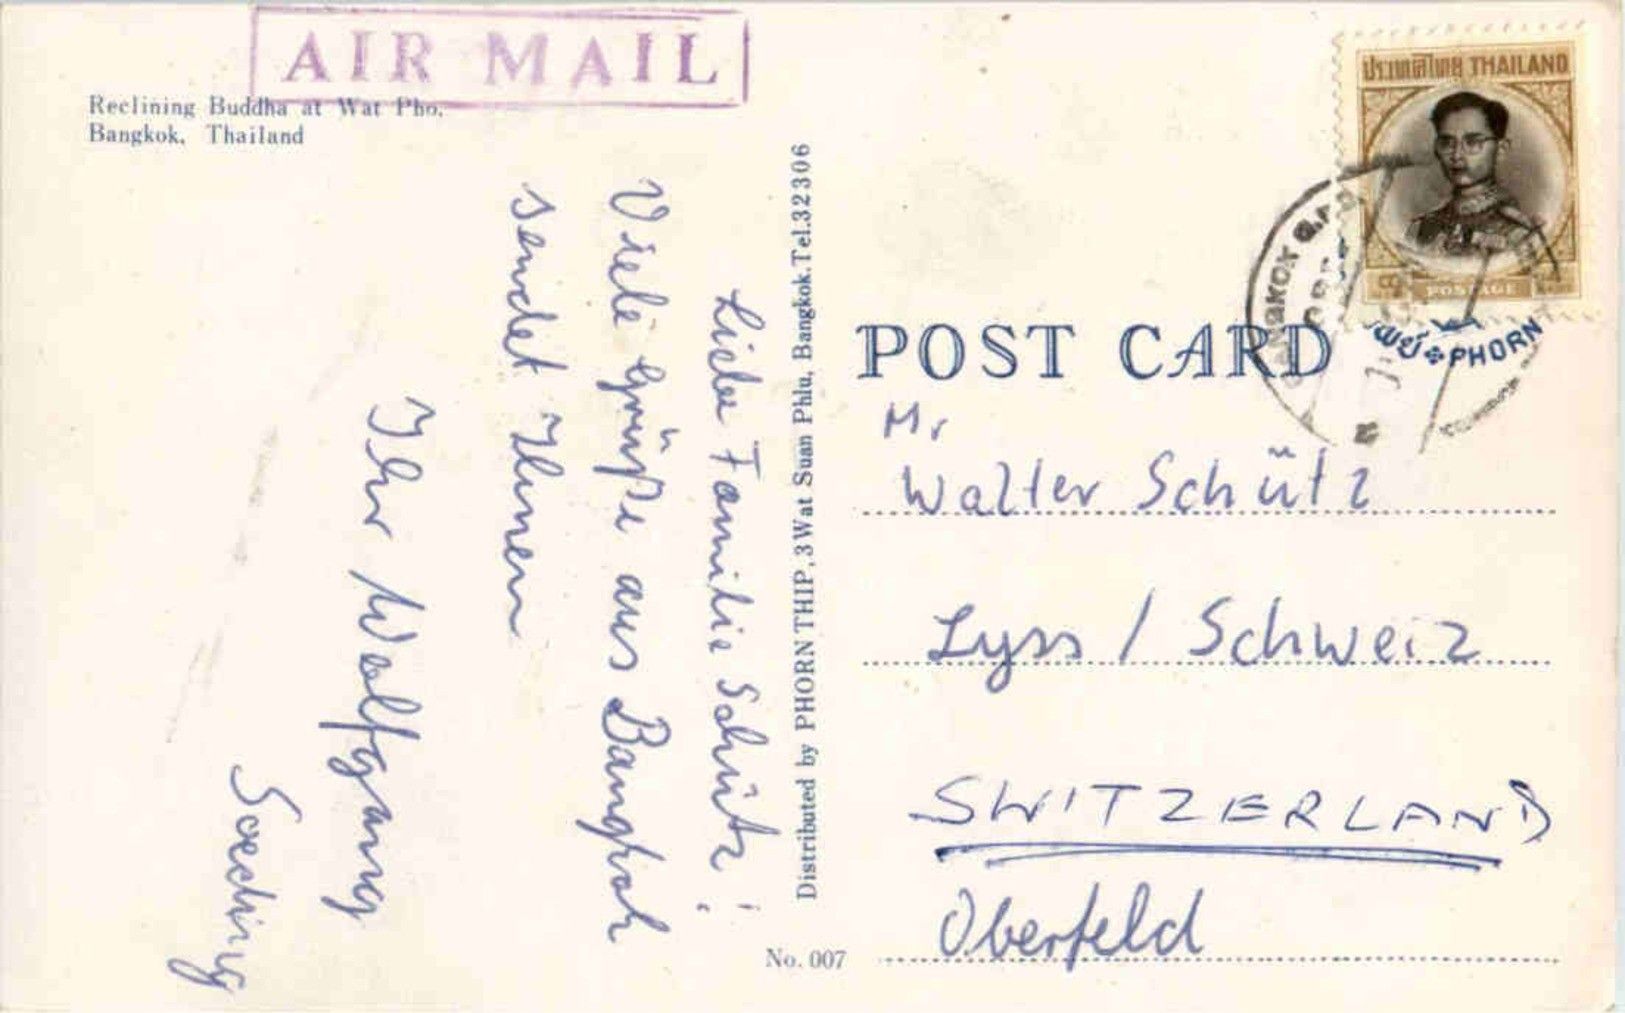 AIR MAIL
Reclining Buddha at Wat Pho.
Bangkok, Thailand
Liebe Familie Schütz!
Viele Grüße aus Bangkok
sendet Ihnen
Ihr Wolfgang
Soeding
Distributed by PHORN THIP, 3 Wat Suan Phlu, Bangkok. Tel. 32306
No. 007
ประเทศไทย THAILAND
POSTAGE
BANGKOK G.P.O.
PHORN
POST CARD
Mr
Walter Schütz
Lyss / Schweiz
SWITZERLAND
Oberfeld